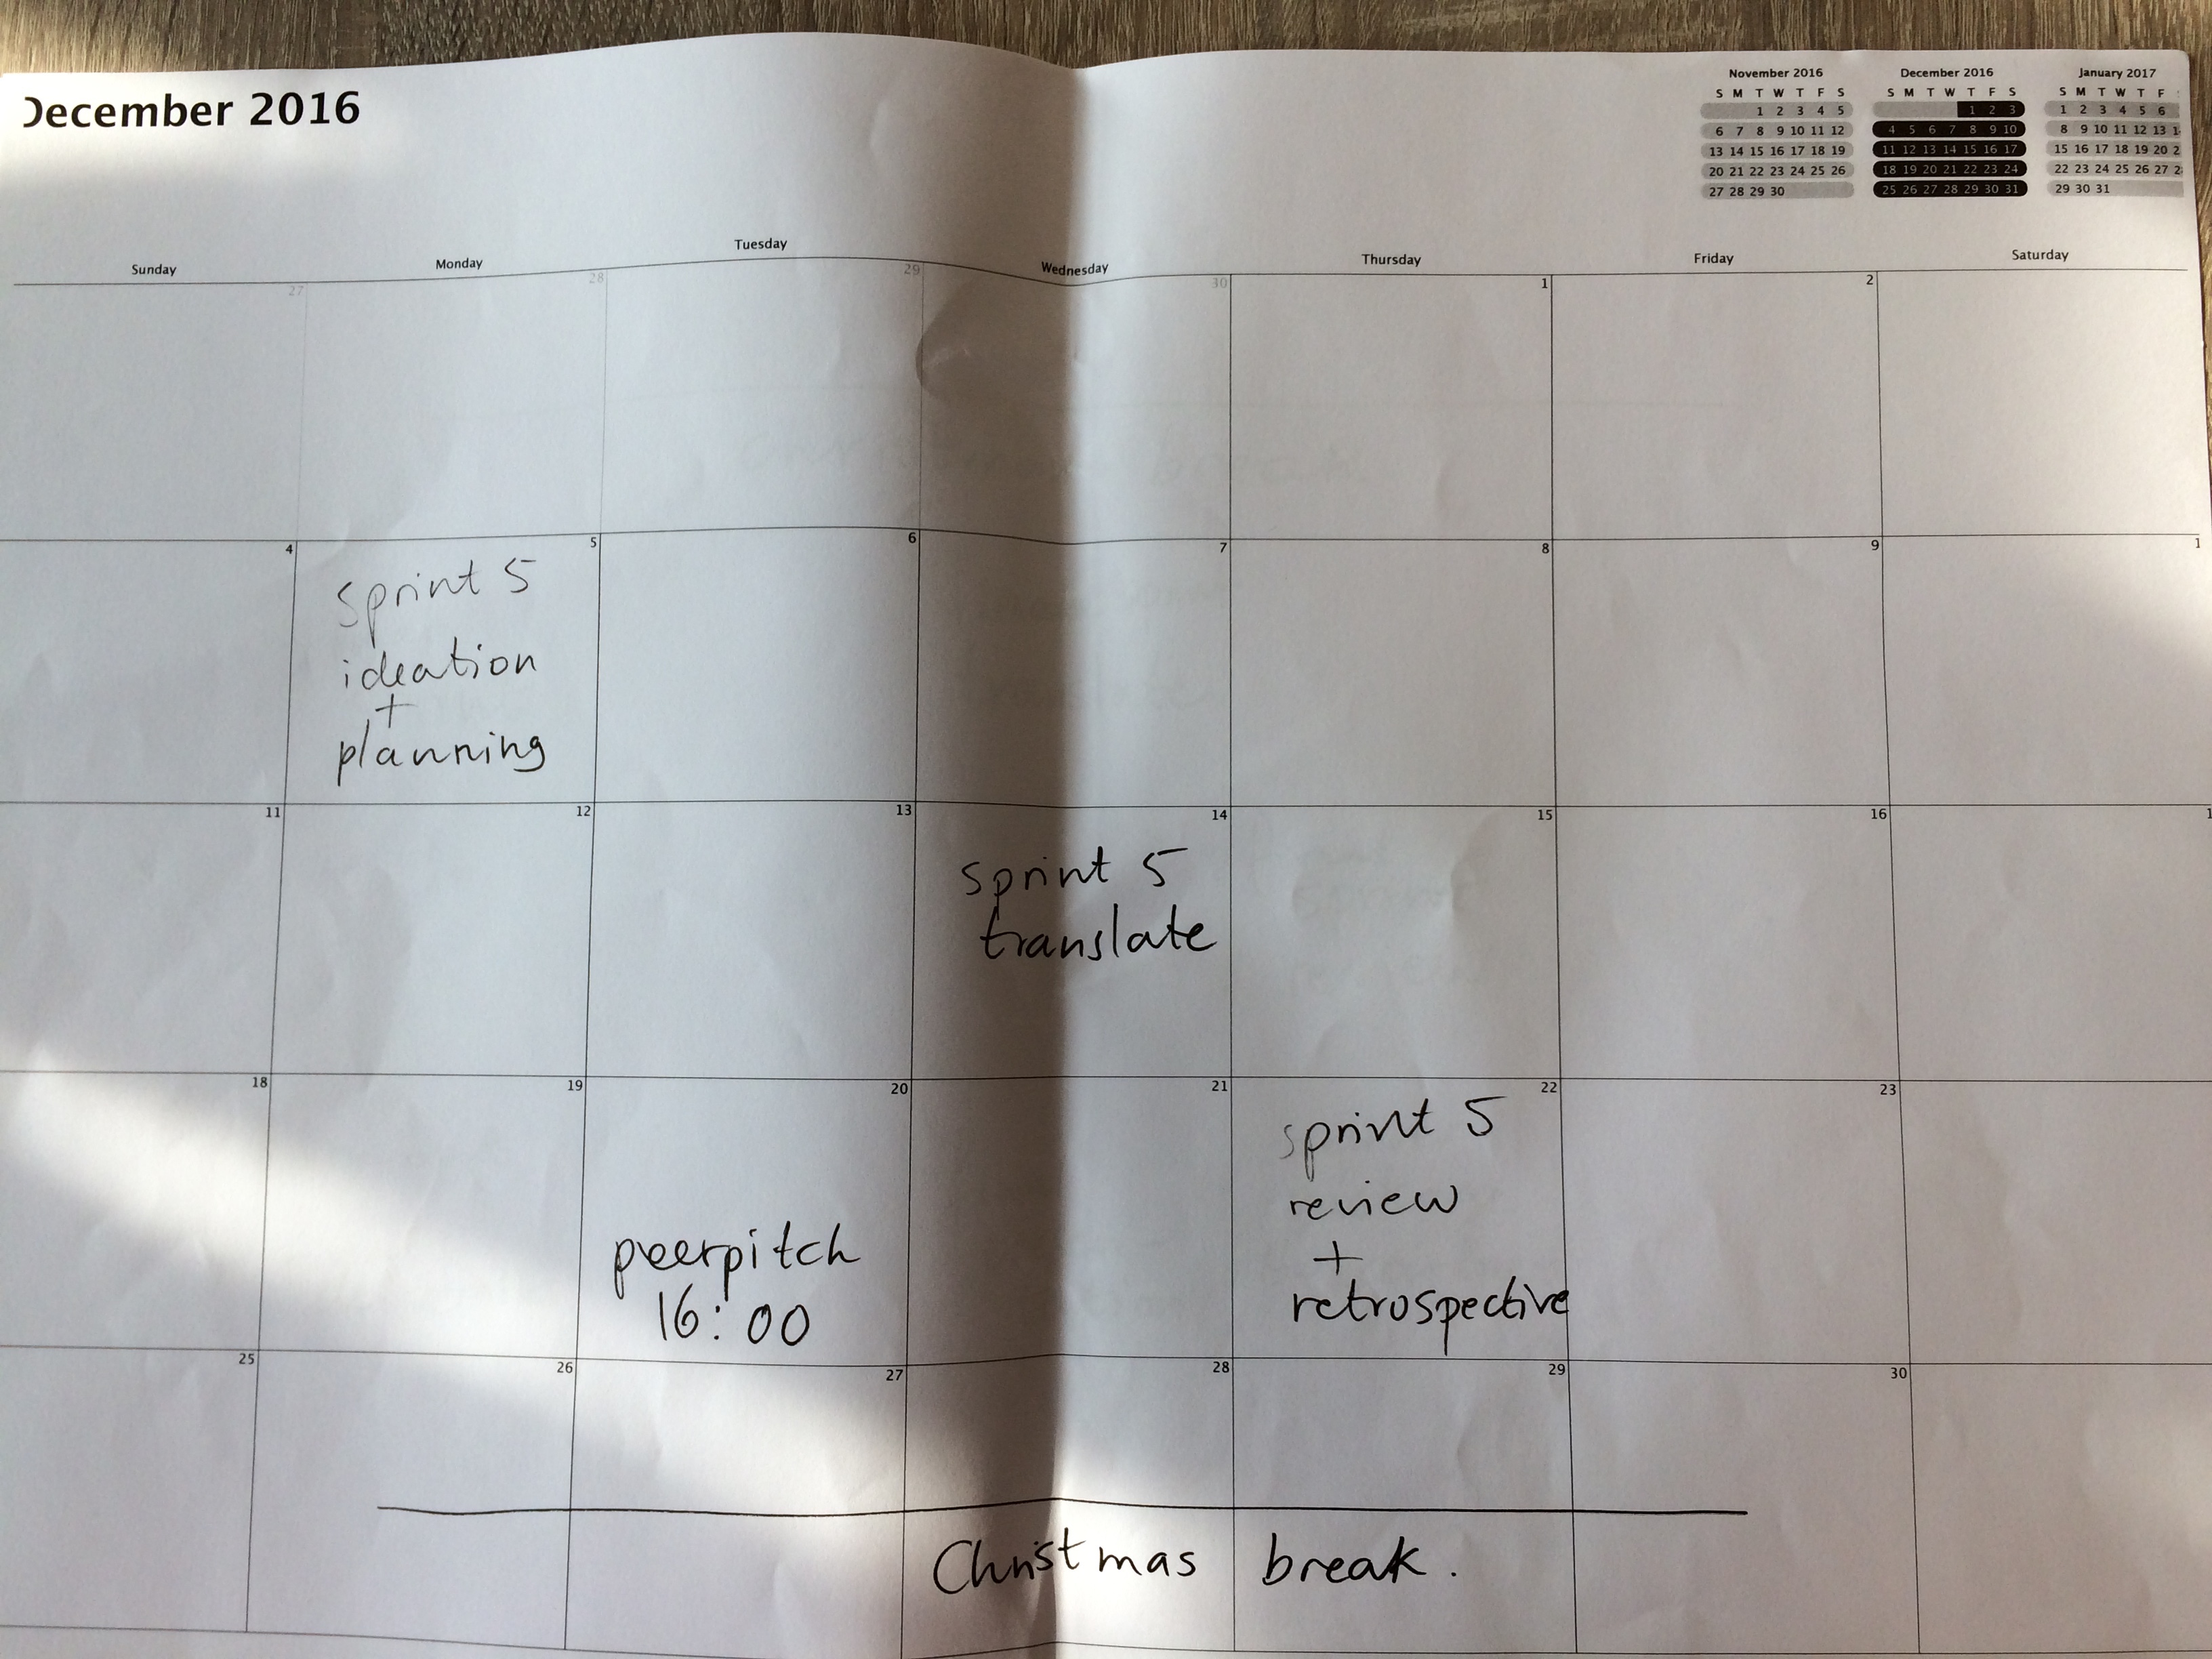 December 2016
November 2016
S M T W T F S
1 2 3 4 5
6 7 8 9 10 11 12
13 14 15 16 17 18 19
20 21 22 23 24 25 26
27 28 29 30
December 2016
S M T W T F S
1 2 3
4 5 6 7 8 9 10
11 12 13 14 15 16 17
18 19 20 21 22 23 24
25 26 27 28 29 30 31
January 2017
S M T W T F
1 2 3 4 5 6
8 9 10 11 12 13
15 16 17 18 19 20
22 23 24 25 26 27
29 30 31
Sunday Monday Tuesday Wednesday Thursday Friday Saturday
27 28 29 30 1 2
4 5 6 7 8 9
sprint 5
ideation
+
planning
11 12 13 14 15 16
sprint 5
translate
18 19 20 21 22 23
peerpitch
16:00
sprint 5
review
+
retrospective
25 26 27 28 29 30
Christmas break.